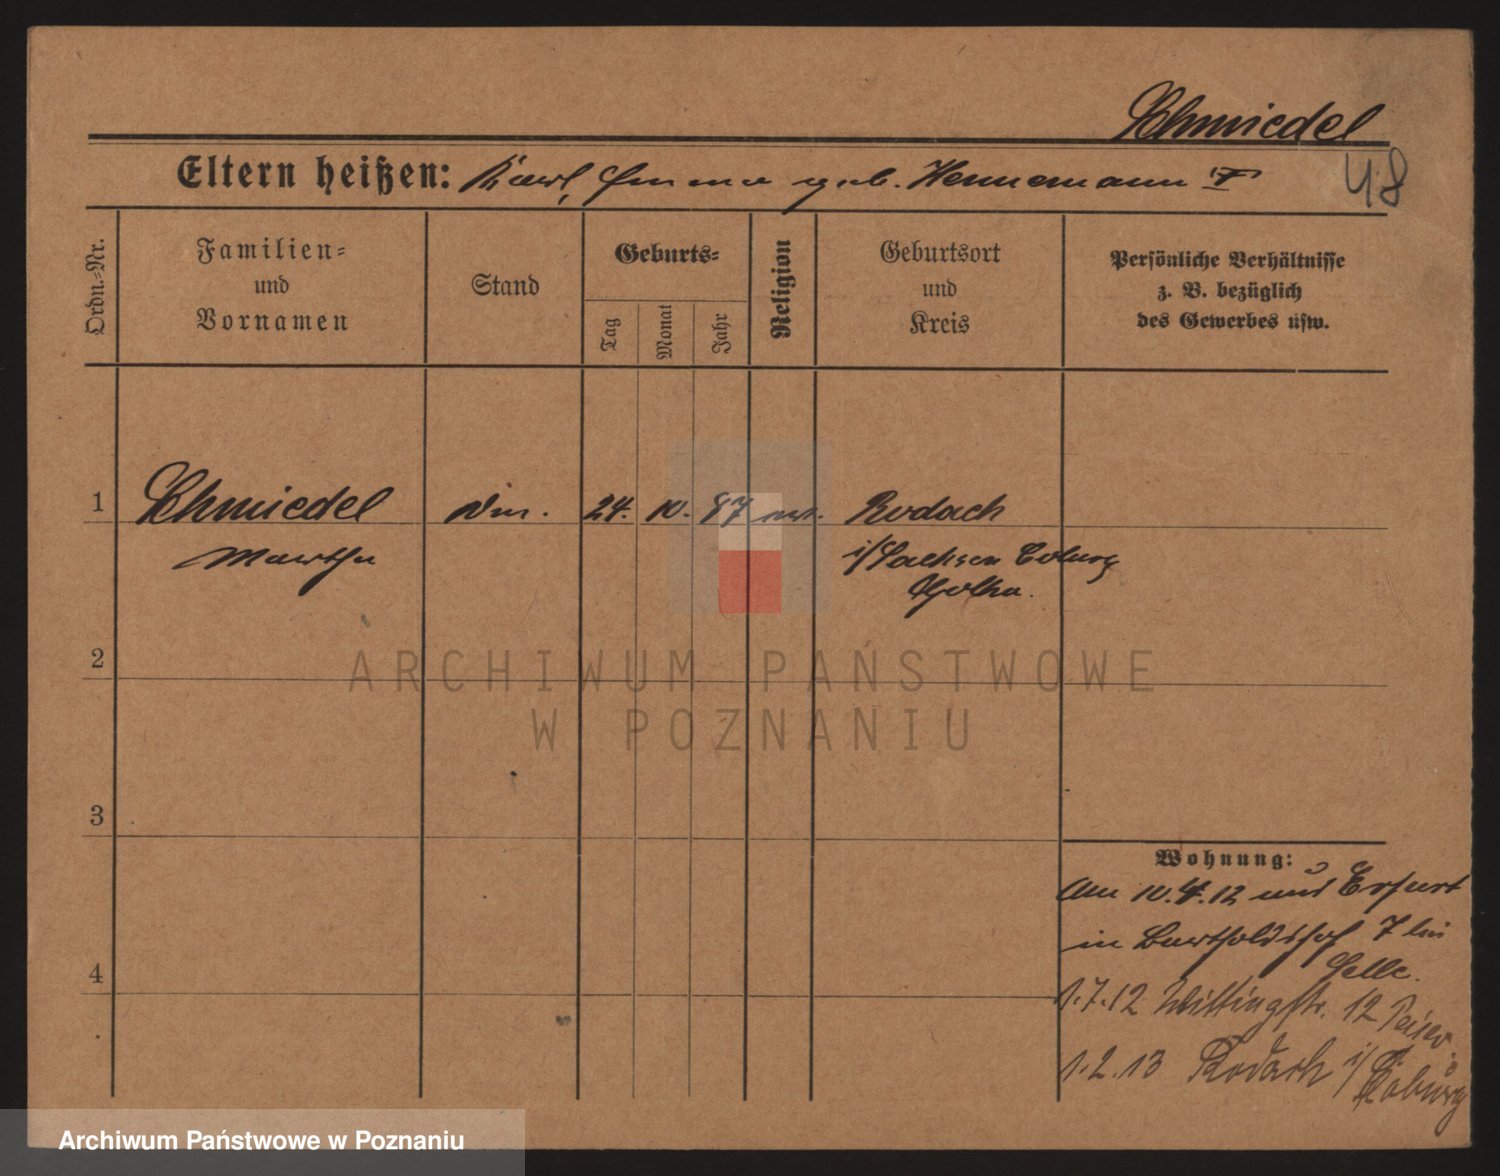 Schmiedel
Eltern heißen: Karl, Emma geb. Hennemann
48
Ordn.-Nr.
Familien-
und
Vornamen
Stand
Geburts-
Tag
Monat
Jahr
Religion
Geburtsort
und
Kreis
Persönliche Verhältnisse
z. B. bezüglich
des Gewerbes usw.
1 Schmiedel 24. 10. 87 Rodach
Martha i/Sachsen Coburg
Gotha.
2
ARCHIWUM PAŃSTWOWE
W POZNANIU
3
Wohnung:
Am 10.4.12 aus Erfurt
in Bartholdshof 7 bei
4
Selle.
1.7.12 Wittingstr. 12 Peiser
1.2.13 Rodach i/ Coburg
Archiwum Państwowe w Poznaniu